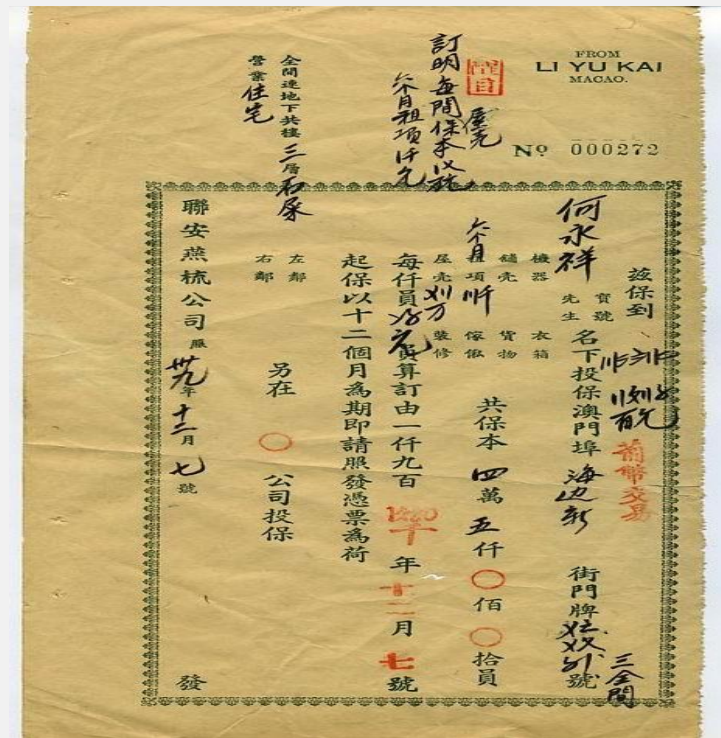 FROM
LI YU KAI
MACAO.
No 000272
訂明每間保本
屋壳
六个月租項仟元
全間連地下共樓三層石屎
營業住宅
茲保到
葡幣交易
何永祥 寶號 先生 名下投保澳門埠 海边新 街門牌 號
三全間
機器 衣箱
舖壳 貨物
六个月租項 傢俬
屋壳 裝修
共保本四萬五仟〇佰〇拾員
每仟員 元 員算訂由一仟九百四十年十二月七號
起保以十二個月為期即請照發憑票為荷
左鄰
右鄰
另在〇公司投保
聯安燕梳公司 照
卅九年十二月七號
發